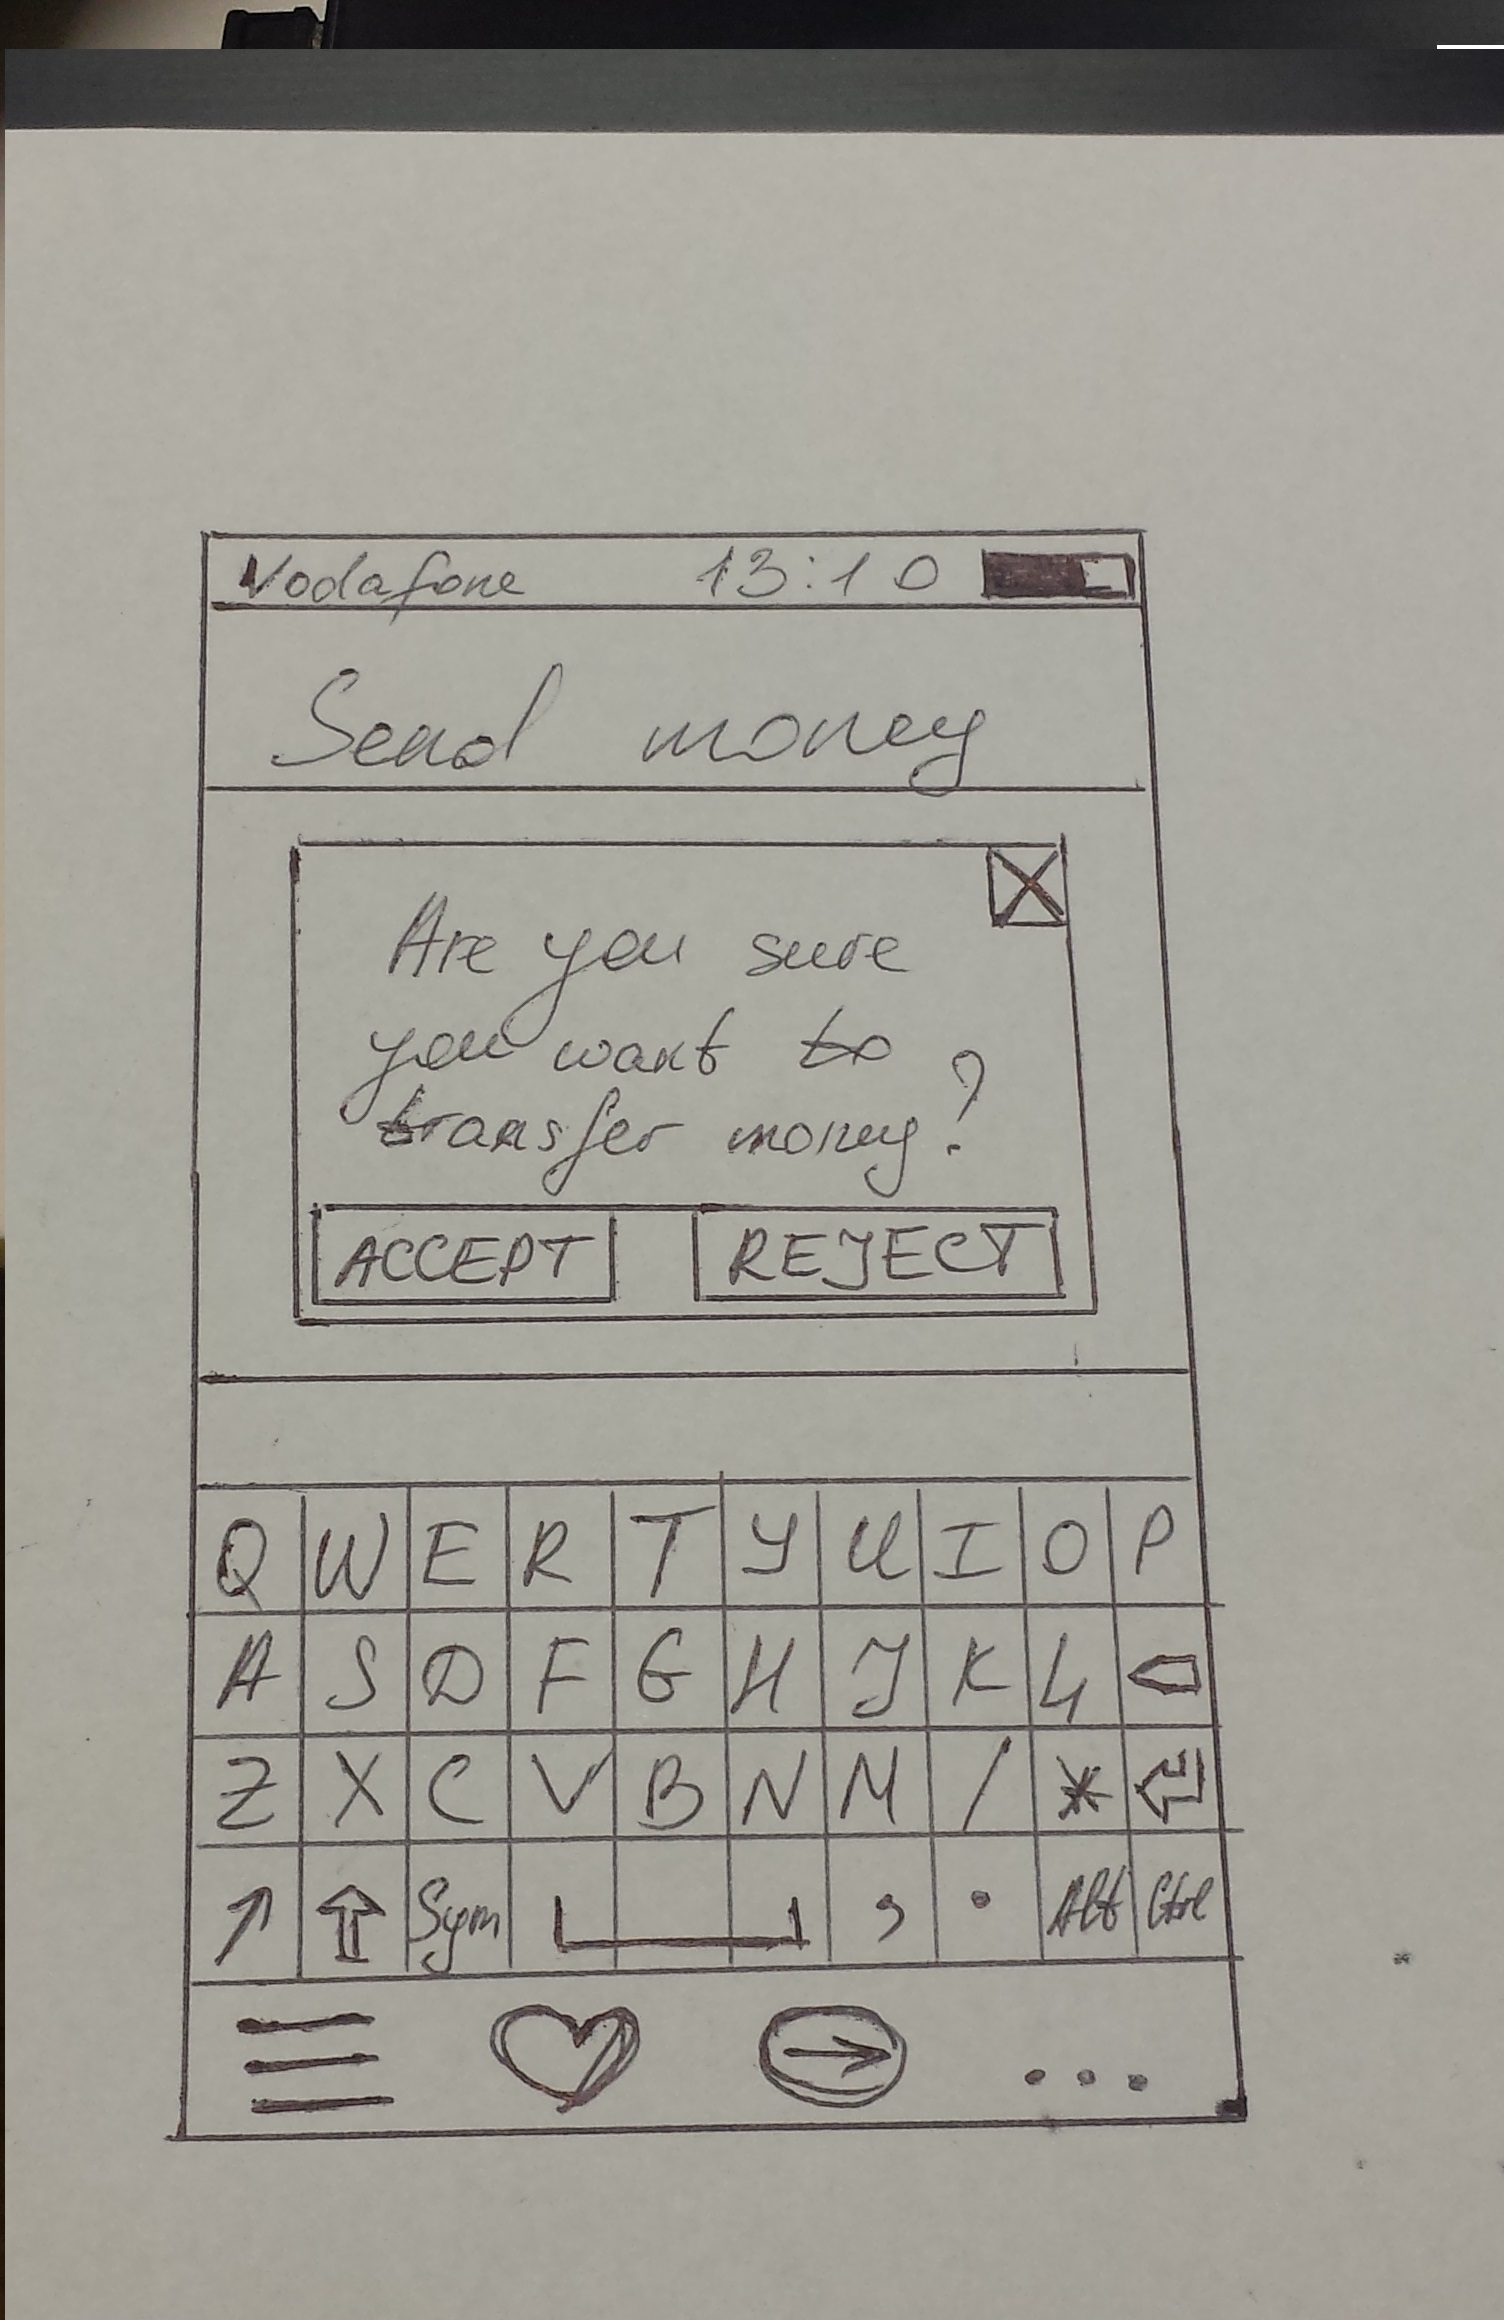 Vodafone 13:10
Send money
X
Are you sure
you want to
transfer money?
ACCEPT REJECT
Q W E R T Y U I O P
A S D F G H J K L
Z X C V B N M / *
Sym , . Alt Ctrl
...